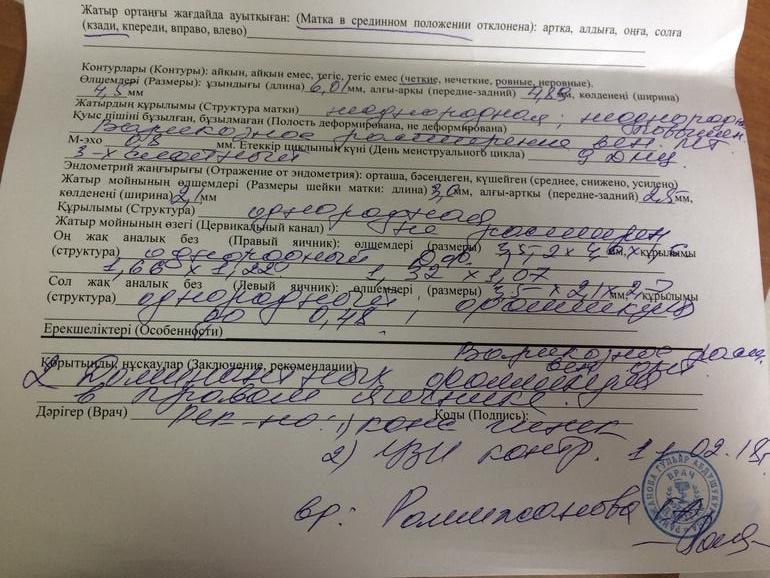 Жатыр ортаңғы жағдайда ауытқыған: (Матка в срединном положении отклонена): артқа, алдыға, оңға, солға
(кзади, кпереди, вправо, влево)
Контурлары (Контуры): айқын, айқын емес, тегіс, тегіс емес (четкие, нечеткие, ровные, неровные).
Өлшемдері (Размеры): ұзындығы (длина) 6,01 мм, алғы-арқы (передне-задний) 4,89 мм, көлденеңі (ширина)
4,5 мм
Жатырдың құрылымы (Структура матки) неоднородная; неоднородн.
Қуыс пішіні бұзылған, бұзылмаған (Полость деформирована, не деформирована)
Варикозное расширение вен МТ
М-эхо 0,8 мм. Етеккір циклының күні (День менструального цикла) 9 ДМЦ
3-х слойный
Эндометрий жаңғырығы (Отражение от эндометрия): орташа, бәсеңдеген, күшейген (среднее, снижено, усилено)
Жатыр мойнының өлшемдері (Размеры шейки матки: длина) 3,0 мм, алғы-артқы (передне-задний) 2,5 мм,
көлденеңі (ширина) 2,1 мм
Құрылымы (Структура) однородная
Жатыр мойнының өзегі (Цервикальный канал) не расширен
Оң жақ аналык без (Правый яичник): өлшемдері (размеры) мм, құрылымы
(структура) однородный
1,66 х 1,22 1,32 х 1,07
Сол жак аналык без (Левый яичник): өлшемдері (размеры) 3,5 х 2,1 х 2,7 мм, құрылымы
(структура) однородный; фолликулы
до 0,48
Ерекшеліктері (Особенности)
Варикозное расш.
вен
Қорытынды, нұсқаулар (Заключение, рекомендации)
2 доминантных фолликула
в правом яичнике.
Дәрігер (Врач) Қолы (Подпись):
рек-но: 1) конс гинек
2) УЗИ контр. 11.02.18г
вр: Рамижанова
ВРАЧ